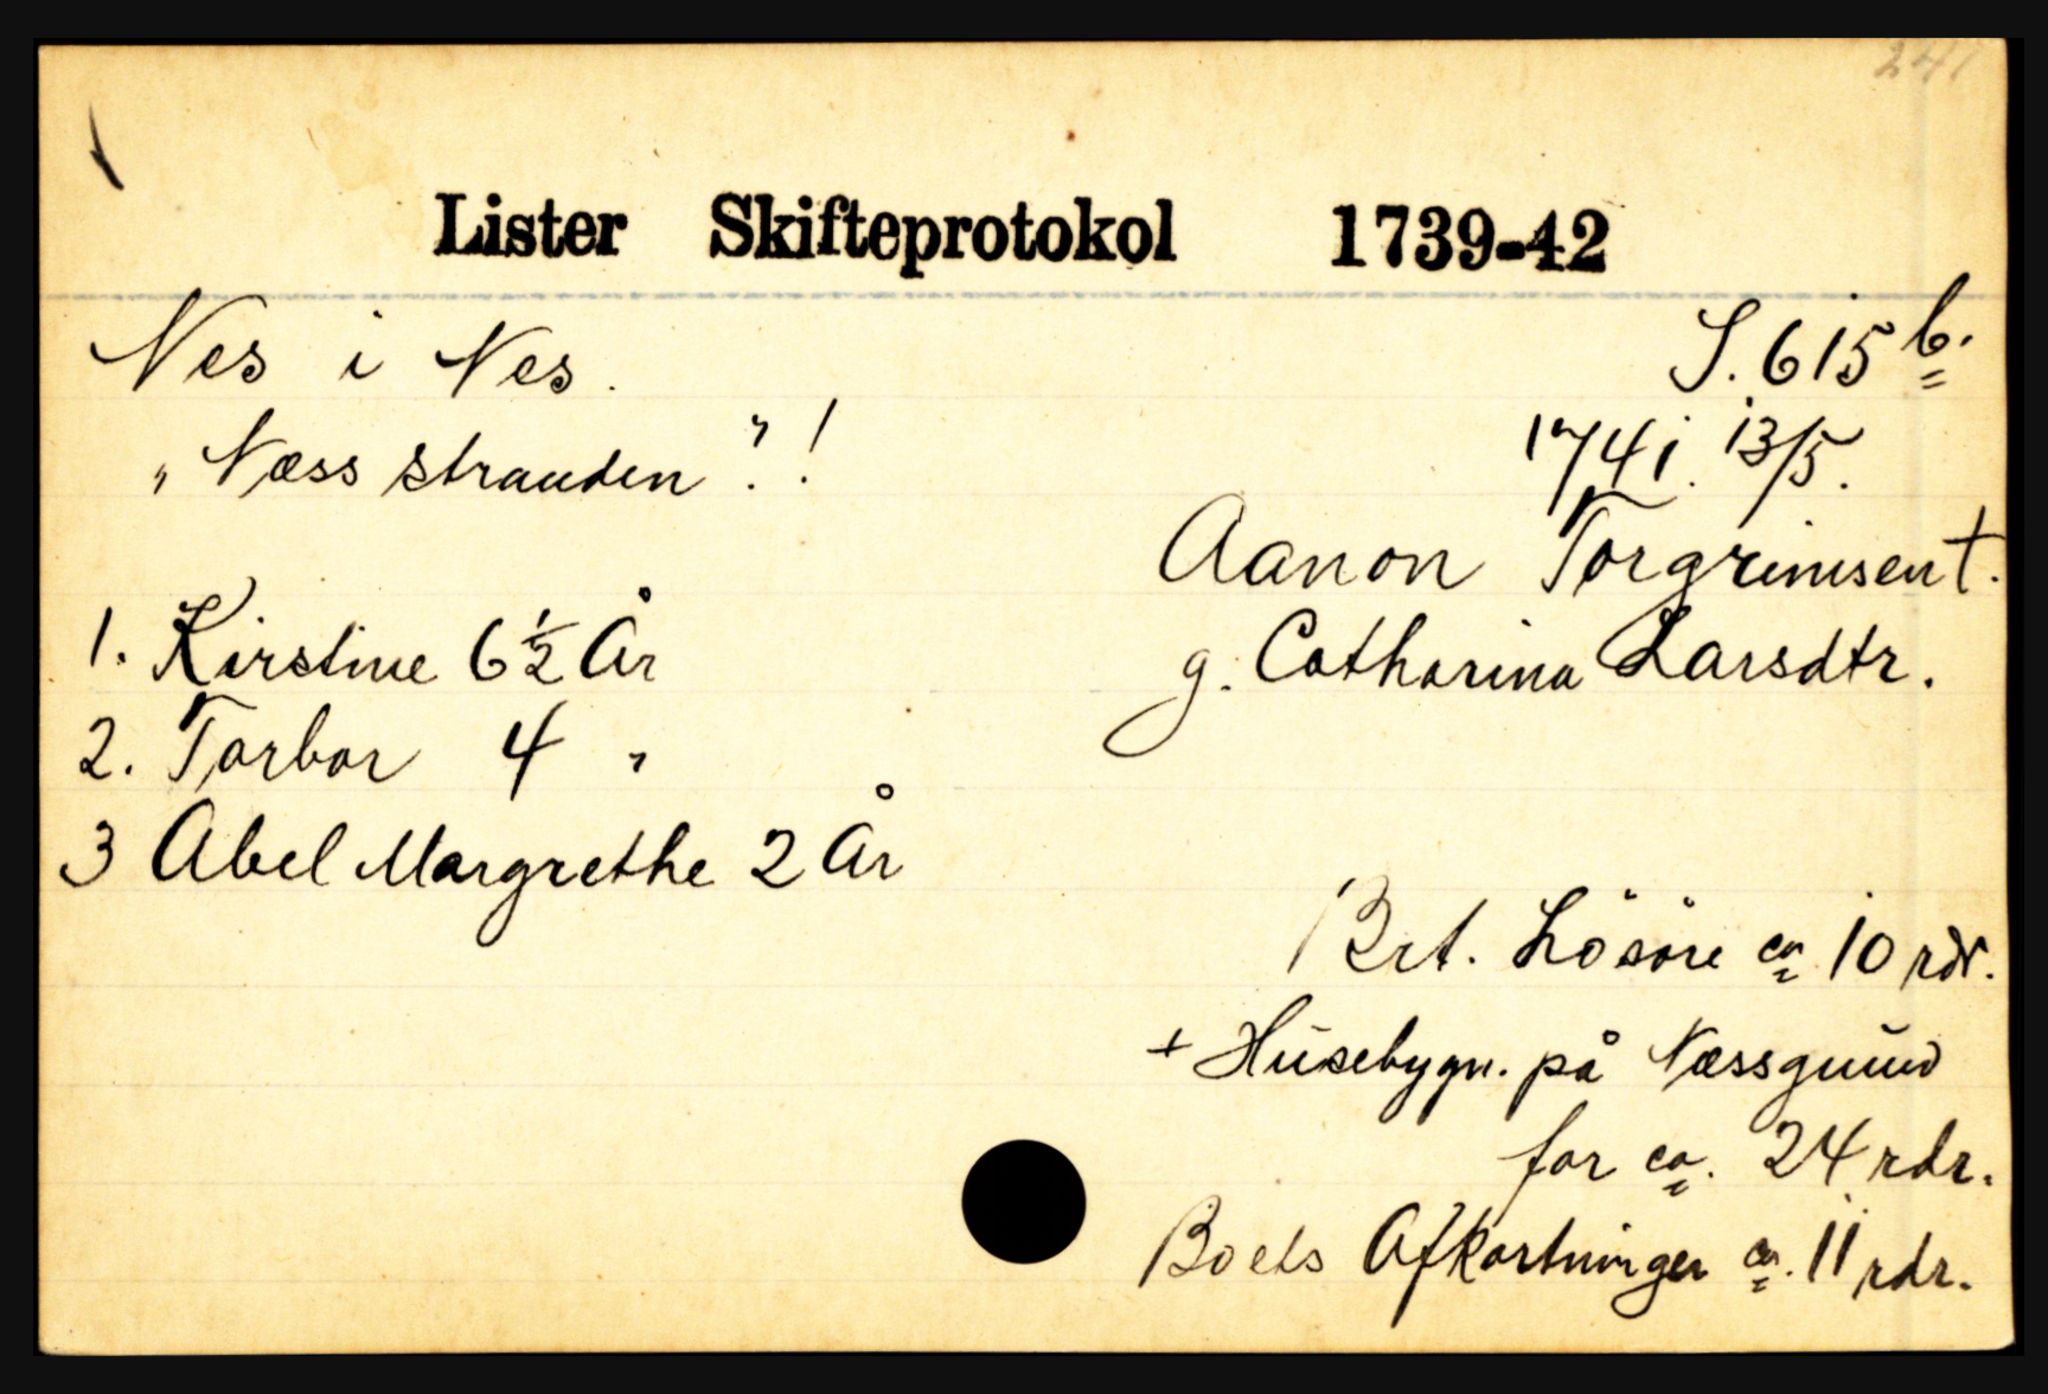 241
Lister Skifteprotokol 1739-42
Nes i Nes.
S. 615 b.
„Næss stranden”.!
1741. 13/5.
Aanon Torgrimsen †.
1. Kirstine 6 1/2 År
g. Catharina Larsdtr.
2. Torbor 4 "
3 Abel Margrethe 2 År
Brt. Lösöre ca. 10 rdr.
+ Husebygn. på Næssgrund
for ca. 24 rdr.
Boets Afkortninger ca. 11 rdr.